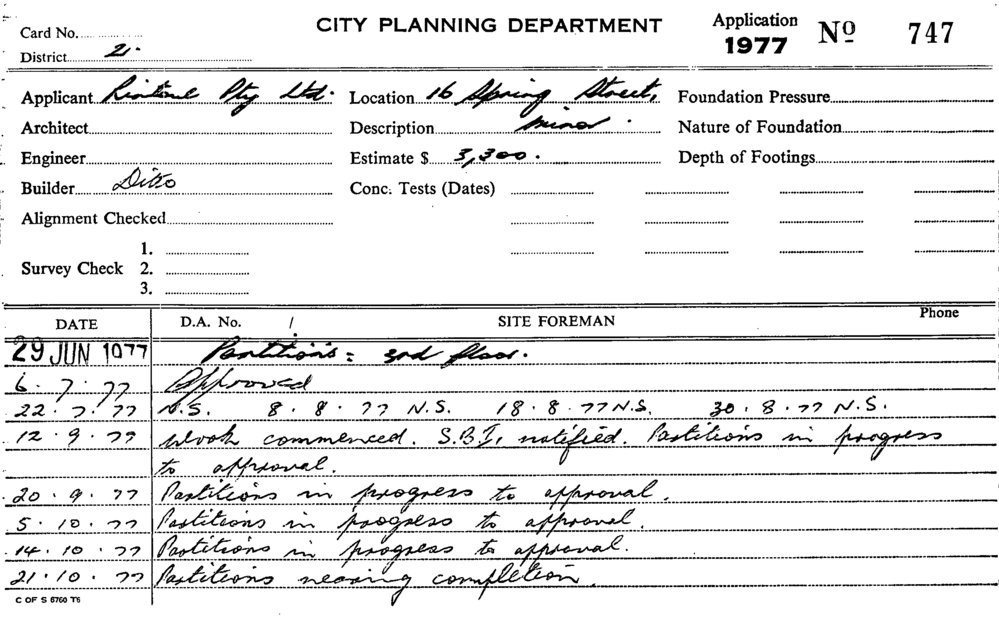 CITY PLANNING DEPARTMENT
Application 1977 Nº 747
Card No.
District 2.
Applicant Pty Ltd. Location 16 Spring Street, Foundation Pressure
Architect Description minor. Nature of Foundation
Engineer Estimate $ 3,300. Depth of Footings
Builder Ditto Conc. Tests (Dates)
Alignment Checked
Survey Check 1.
2.
3.
DATE D.A. No. / SITE FOREMAN Phone
29 JUN 1977 Partitions: 3rd floor.
6.7.77 Approved
22.7.77 N.S. 8.8.77 N.S. 18.8.77 N.S. 30.8.77 N.S.
12.9.77 Work commenced. S.B.I. notified. Partitions in progress
to approval.
20.9.77 Partitions in progress to approval.
5.10.77 Partitions in progress to approval.
14.10.77 Partitions in progress to approval.
21.10.77 Partitions nearing completion.
C OF S 6760 T6